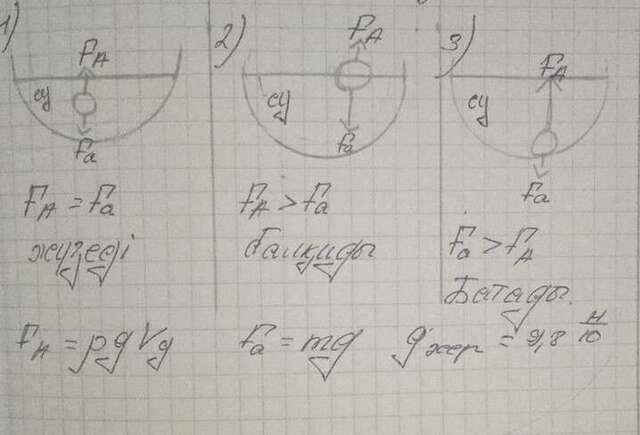 1)
F_A
су
F_a
F_A = F_a
жүзеді
2)
F_A
су
F_a
F_A > F_a
Қалқиды
3)
F_A
су
F_a
F_a > F_A
Батады.
F_A = ρgVg
F_a = mg
g жер = 9,8 Н/10